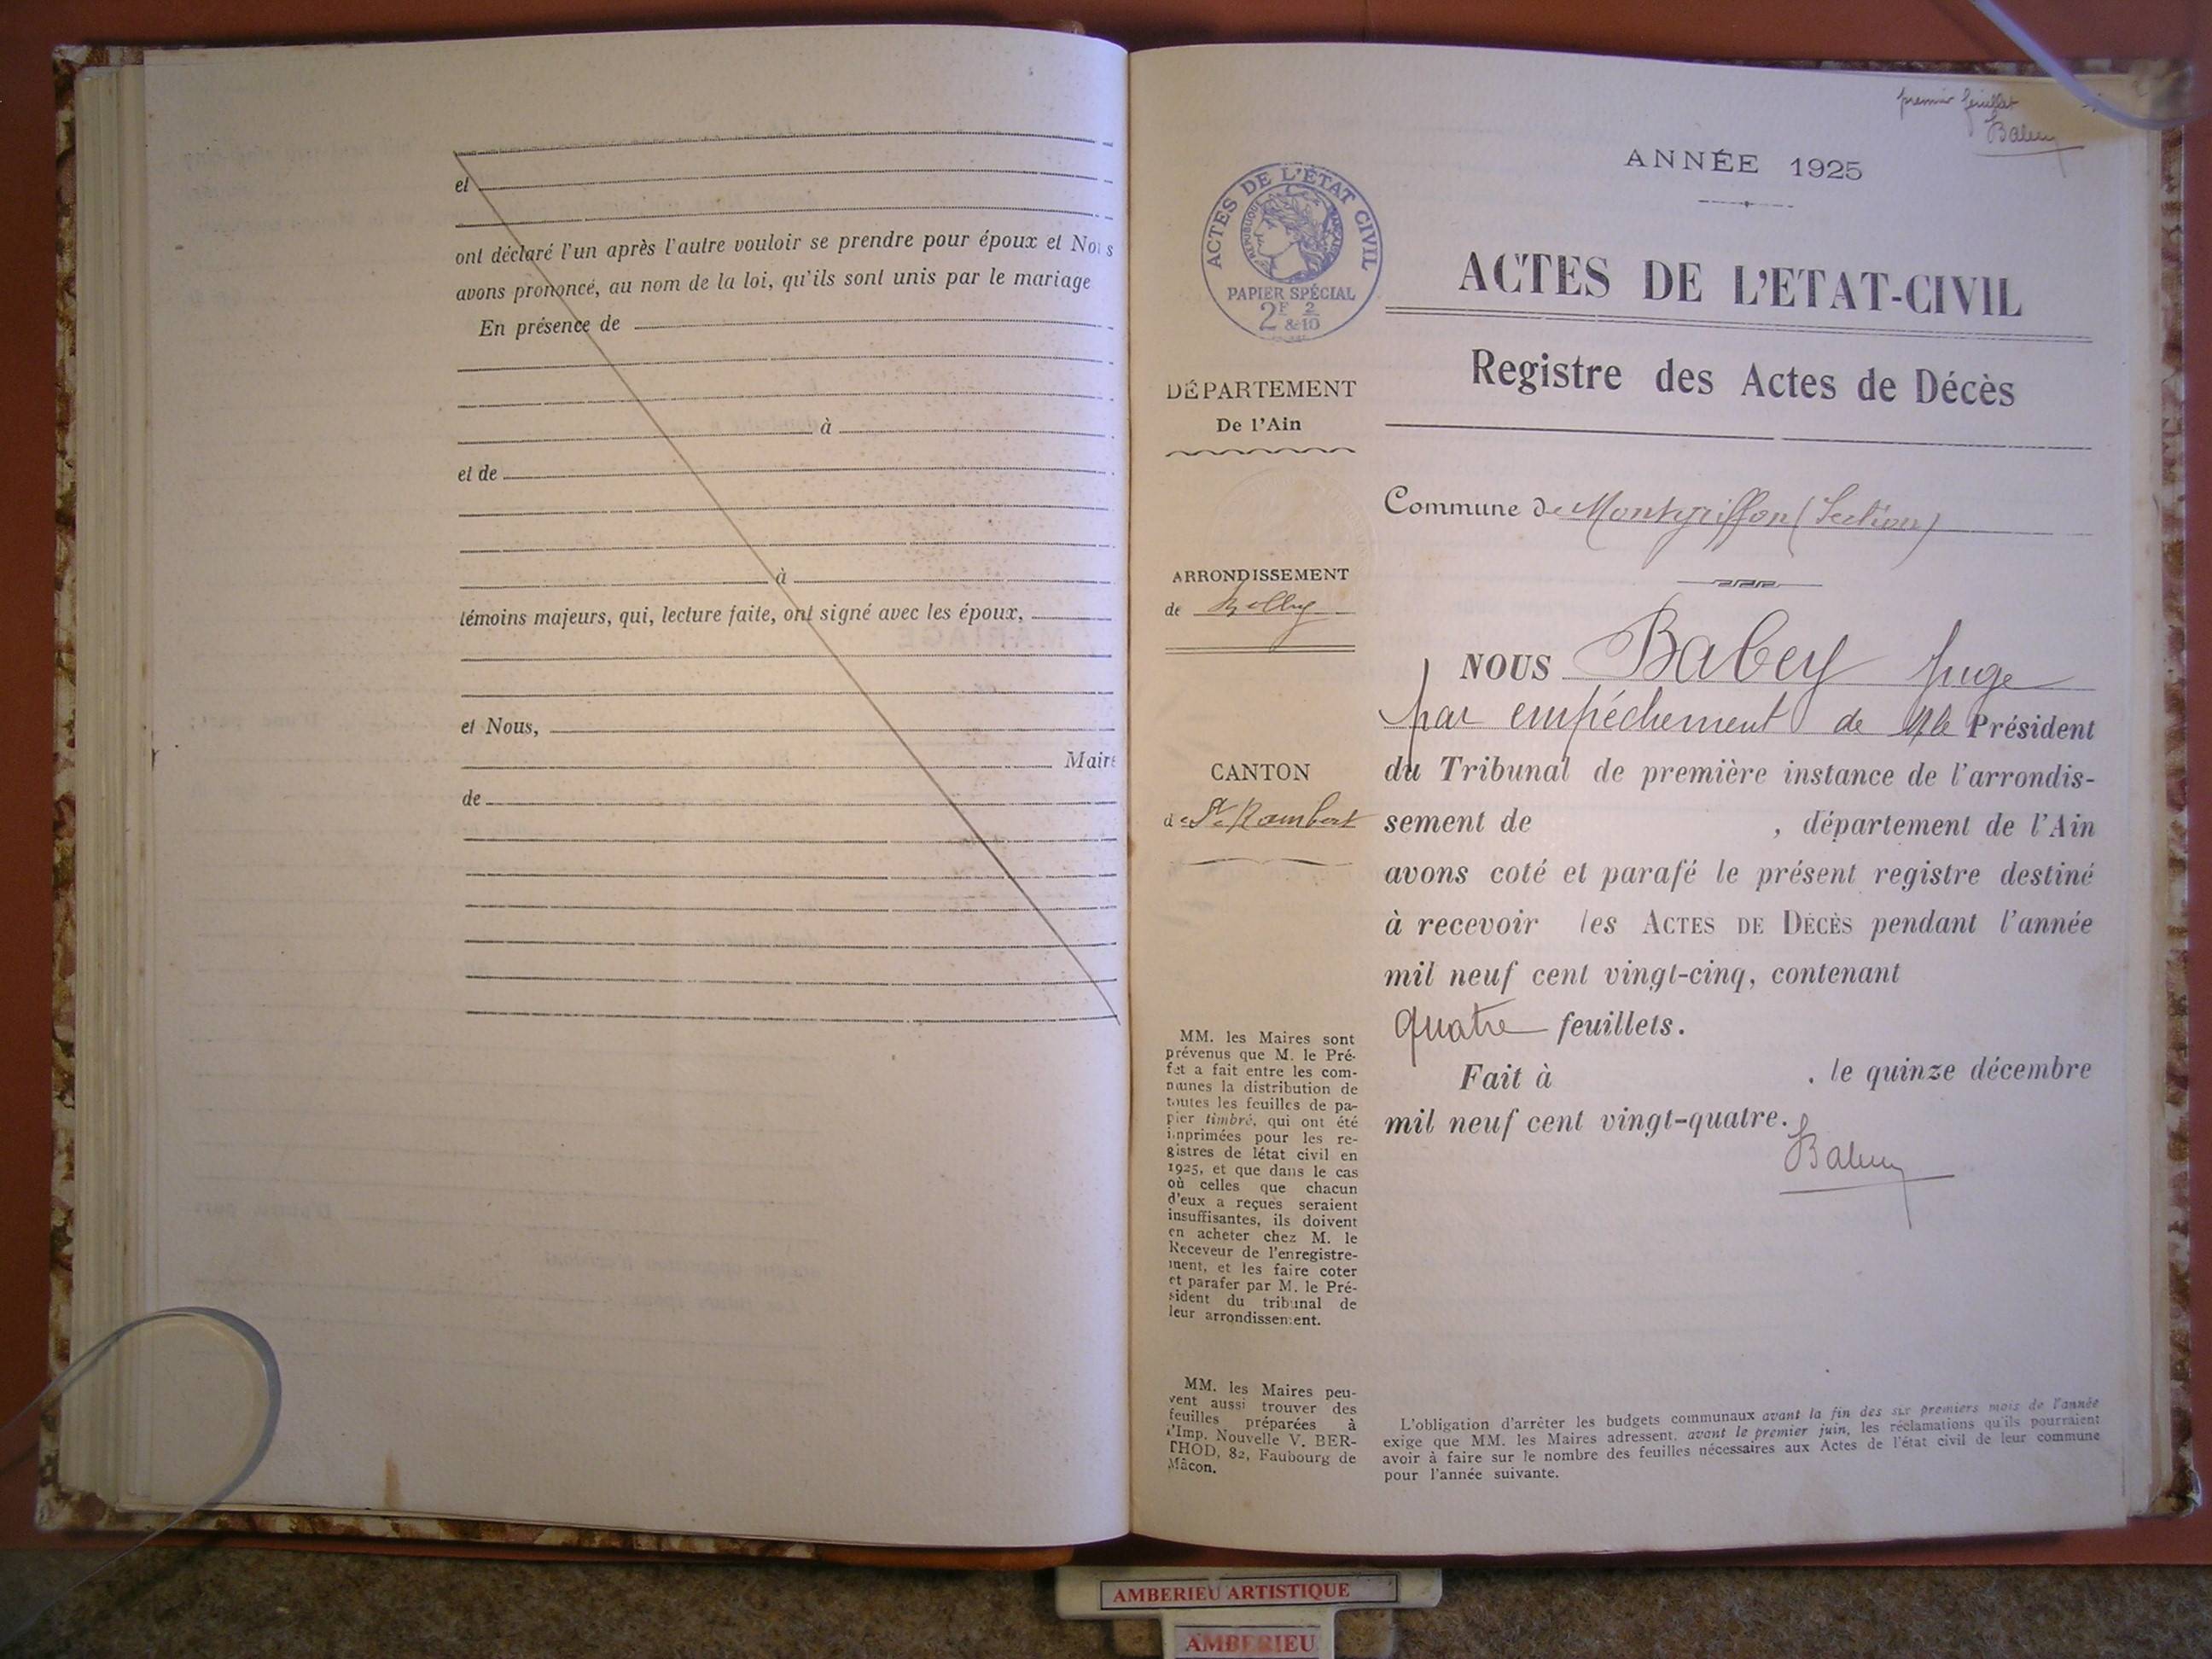 et
ont déclaré l'un après l'autre vouloir se prendre pour époux et Nous
avons prononcé, au nom de la loi, qu'ils sont unis par le mariage
En présence de
à
et de
à
témoins majeurs, qui, lecture faite, ont signé avec les époux,
et Nous,
Maire
de
premier feuillet
Babey
ANNÉE 1925
ACTES DE L'ÉTAT CIVIL
RÉPUBLIQUE FRANÇAISE
PAPIER SPÉCIAL
2F 2
&10
ACTES DE L'ETAT-CIVIL
Registre des Actes de Décès
DÉPARTEMENT
De l'Ain
Commune de Montgriffon (Section)
ARRONDISSEMENT
de Belley
CANTON
de St Rambert
NOUS Babey juge
par empéchement de M le Président
du Tribunal de première instance de l'arrondis-
sement de , département de l'Ain
avons coté et parafé le présent registre destiné
à recevoir les ACTES DE DÉCÈS pendant l'année
mil neuf cent vingt-cinq, contenant
quatre feuillets.
Fait à , le quinze décembre
mil neuf cent vingt-quatre.
Babey
MM. les Maires sont
prévenus que M. le Pré-
fet a fait entre les com-
munes la distribution de
toutes les feuilles de pa-
pier timbré, qui ont été
imprimées pour les re-
gistres de létat civil en
1925, et que dans le cas
où celles que chacun
d'eux a reçues seraient
insuffisantes, ils doivent
en acheter chez M. le
Receveur de l'enregistre-
ment, et les faire coter
et parafer par M. le Pré-
sident du tribunal de
leur arrondissement.
MM. les Maires peu-
vent aussi trouver des
feuilles préparées à
l'Imp. Nouvelle V. BER-
THOD, 82, Faubourg de
Mâcon.
L'obligation d'arrêter les budgets communaux avant la fin des six premiers mois de l'année
exige que MM. les Maires adressent, avant le premier juin, les réclamations qu'ils pourraient
avoir à faire sur le nombre des feuilles nécessaires aux Actes de l'état civil de leur commune
pour l'année suivante.
AMBERIEU ARTISTIQUE
AMBERIEU